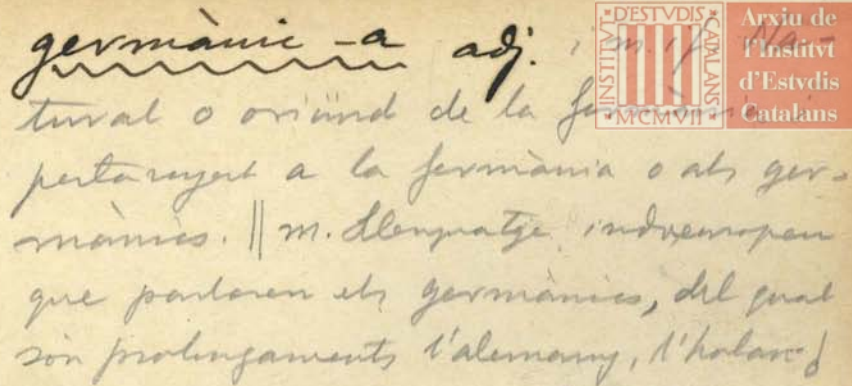 germànic -a adj. i m. i f. Na-
tural o oriünd de la Germània i
pertanyent a la Germània o als ger-
mànics. || m. Llenguatge indoeuropeu
que parlaren els germànics, del qual
són prolongaments l'alemany, l'holand
INSTITVT D'ESTVDIS CATALANS
MCMVII
Arxiu de
l'Institvt
d'Estvdis
Catalans